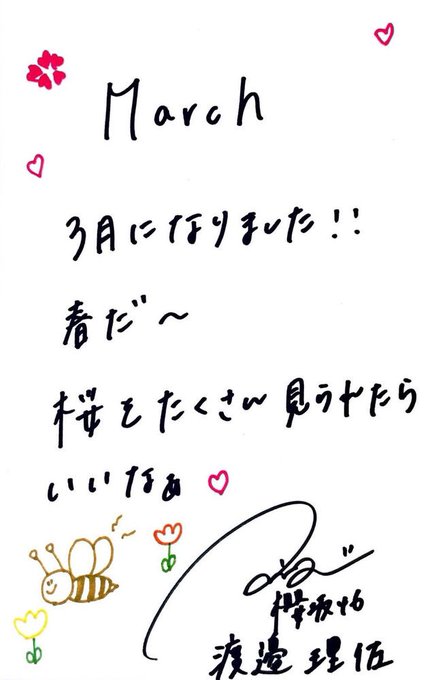 March
3月になりました!!
春だ～
桜をたくさん見られたら
いいなぁ
櫻坂46
渡邉理佐